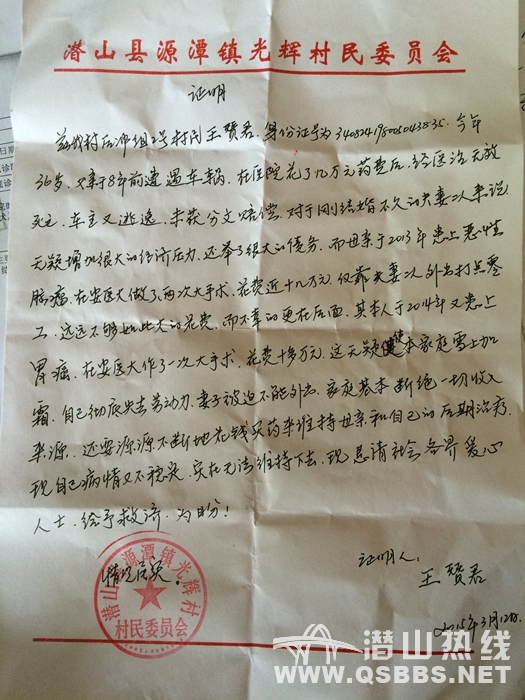 潜山县源潭镇光辉村民委员会
证明
兹我村后冲组2号村民王贤君，身份证号为340824198005043835. 今年
36岁. 父亲于8年前遭遇车祸. 在住院花了几万元药费后. 经医治无效
死亡. 车主又逃逸. 未获分文赔偿. 对于刚结婚不久的夫妻二人来说
无疑增加很大的经济压力. 还举了很大的债务. 而母亲于2013年患上恶性
脑瘤. 在安医大做了两次大手术. 花费近十几万元. 仅靠夫妻二人外出打点零
工. 远远不够如此大的花费. 而不幸的更在后面. 其本人于2014年又患上
胃癌. 在安医大作了一次大手术. 花费十多万元. 这无疑使本家庭雪上加
霜. 自己彻底失去劳动力. 妻子被迫不能外出. 家庭基本断绝一切收入
来源. 还要源源不断地花钱买药来维持母亲和自己的后期治疗.
现自己病情又不稳定. 实在无法维持下去. 现恳请社会各界爱心
人士. 给予救济. 为盼！
情况属实！
潜山县源潭镇光辉村
村民委员会
证明人：
王贤君
2015年3月12日
潜山热线
WWW.QSBBS.NET